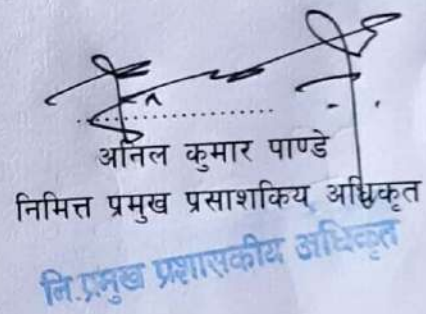 अनिल कुमार पाण्डे
निमित्त प्रमुख प्रसाशकिय अधिकृत
नि.प्रमुख प्रशासकीय अधिकृत